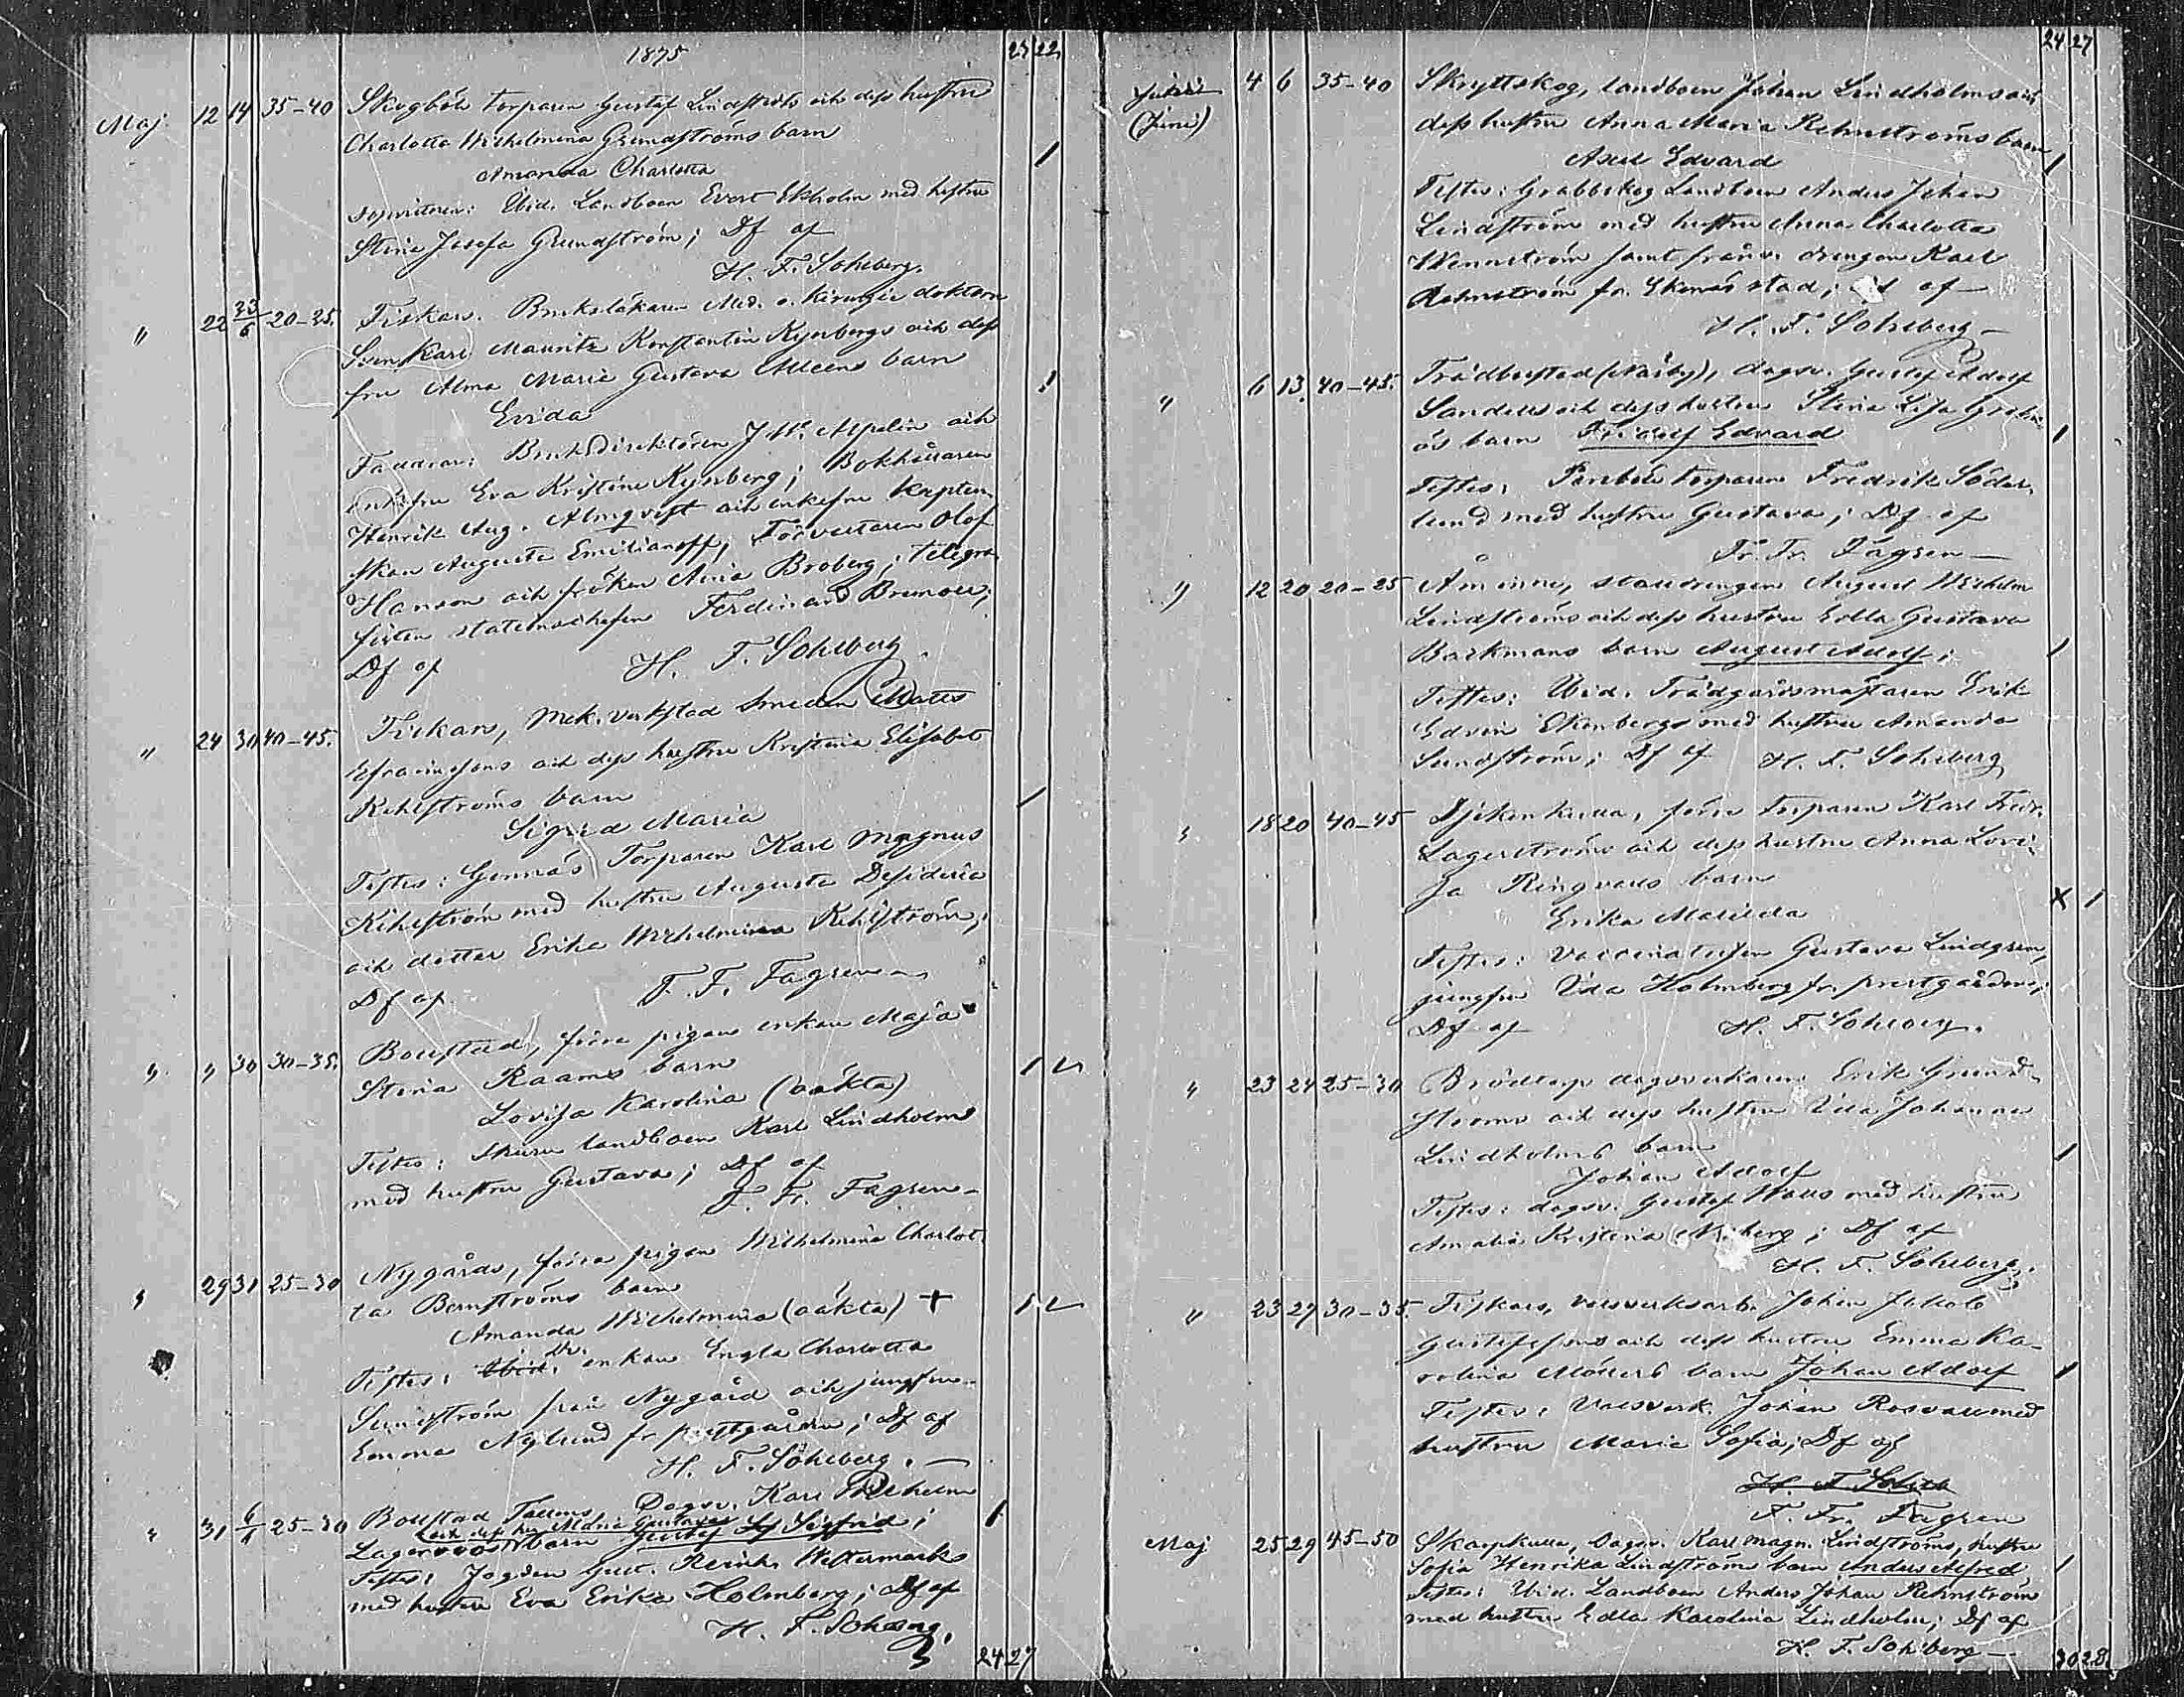 1875
23 22
Maj 12 14 35-40 Skogböle torparen Gustaf Lindströms och dess hustru
Charlotta Wilhelmina Grundströms barn
Amanda Charlotta
Ibid. Landboen Evert Ekholm med hustru
Stina Josefa Grundström; Df af
H. F. Sohlberg.
" 22 23/6 20-25. Fiskars. Bruksläkaren Med. o. Kirurgie doktorn
Sven Karl Mauritz Konstantin Kynbergs och dess
fru Alma Maria Gustava barn
Faddrar: Bruksdirektören J. W. Alfelin och
enkefru Eva Kristina Kynberg; Bokhållaren
Henrik Aug. Almqvist och enkefru Kapten-
skan Augusta Emilianoff; Förvaltaren Olof
Hanson och fröken Broberg; Telegra-
Ferdinand Brunou;
Df af H. F. Sohlberg
" 24 30 40-45. Fiskars, Mek. verkstad smeden Matts
Efraimssons och dess hustru Kristina Elisabet
Kihlströms barn
Sigrid Maria
Testes: Gennäs Torparen Karl Magnus
Kihlström med hustru Augusta Desideria
och dotter Erika Wilhelmina Kihlström;
Df af F. F. Fagren
" " 30 30-35. Bollstad, förra pigan enkan Maja
Stina Raams barn
Lovisa Karolina (oäkta)
Testes: Skuru landboen Karl Lindholm
med hustru Gustava; Df af
F. Fr. Fagren
" 29 31 25-30 Nygårds, förra pigan Wilhelmina Charlot-
ta Bernströms barn
Amanda Wilhelmina (oäkta) +
Testes: Ibid. enkan Engla Charlotta
Sundström från Nygård och jungfru
Emma Nylund fr prestgården; Df af
H. F. Sohlberg.
" 31 6/6 25-30 Bollstad Dagsv. Karl Wilhelm
och dess hu Maria Gustavas
barn Gustaf Sigfrid;
Testes: Gust. Henrik Westermark
med hustru Eva Erika Holmberg; Df af
H. F. Sohlberg.
24 27
24 27
Juli
(Juni) 4 6 35-40 Skryttskog, landboen Johan Lindholms och
dess hustru Anna Maria Rehnströms barn
Axel Edvard
Testes: Grabbskog Landboen Anders Johan
Lindström med hustru Anna Charlotta
Wennström samt drengen Karl
Rehnström fr. Ekenäs stad; Df af
H. F. Sohlberg
" 6 13. 40-45. Trädbollstad (Näsby), dagsv. Gustaf Adolf
Sandells och dess hustru Stina Lisa
ös barn Fridolf Edvard
Testes: torparen Fredrik Söder-
lund med hustru Gustava; Df af
Fr. Fr. Fagren
" 12 20 20-25 Åminne, stalldrengen August Wilhelm
Lindströms och dess hustru Edla Gustava
Backmans barn August Adolf;
Testes: Ibid. Trädgårdsmästaren Erik
Edvin Ekenbergs med hustru Amanda
Sundström; Df af H. F. Sohlberg
" 18 20 40-45 Djekenkulla, förre torparen Karl Fredr.
Lagerströms och dess hustru Anna Lovi-
sa Ringvalls barn
Erika Matilda
Testes: Vaccinatrisen Gustava Lindgren,
jungfru Ida Holmberg fr. prestgården;
Df af H. F. Sohlberg.
" 23 24 25-30 Brödtorp dagsverkaren Erik Grund-
ströms och dess hustru Ida Johanna
Lindholms barn
Johan Adolf
Testes: dagsv. Gustaf Walls med hustru
Amalia Kristina; Df af
H. F. Sohlberg.
" 23 27 30-35. Fiskars, valsverksarb. Johan Jakob
Gustafssons och dess hustru Emma Ka-
rolina Möllers barn Johan Adolf
Testes: Valsverk. Johan Rosvall med
hustru Maria Sofia; Df af
F. Fr. Fagren
Maj 25 29 45-50 Skarpkulla, Dagsv. Karl Magn. Lindströms, hustru
Sofia Henrika Lindströms barn Anders Alfred
Testes: Ibid. Landboen Anders Johan Rehnström
med hustru Edla Karolina Lindholm; Df af
H. F. Sohlberg
30 28